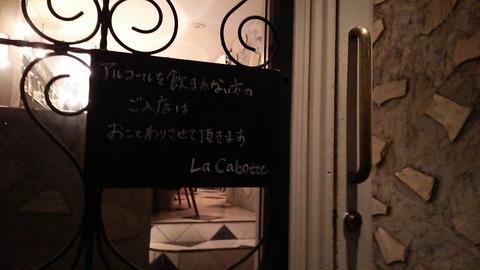 アルコールを飲まれない方の
ご入店は
おことわりさせて頂きます
La Cabotte